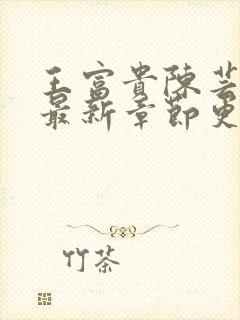 王富貴陳芸
最新章節更
竹茶